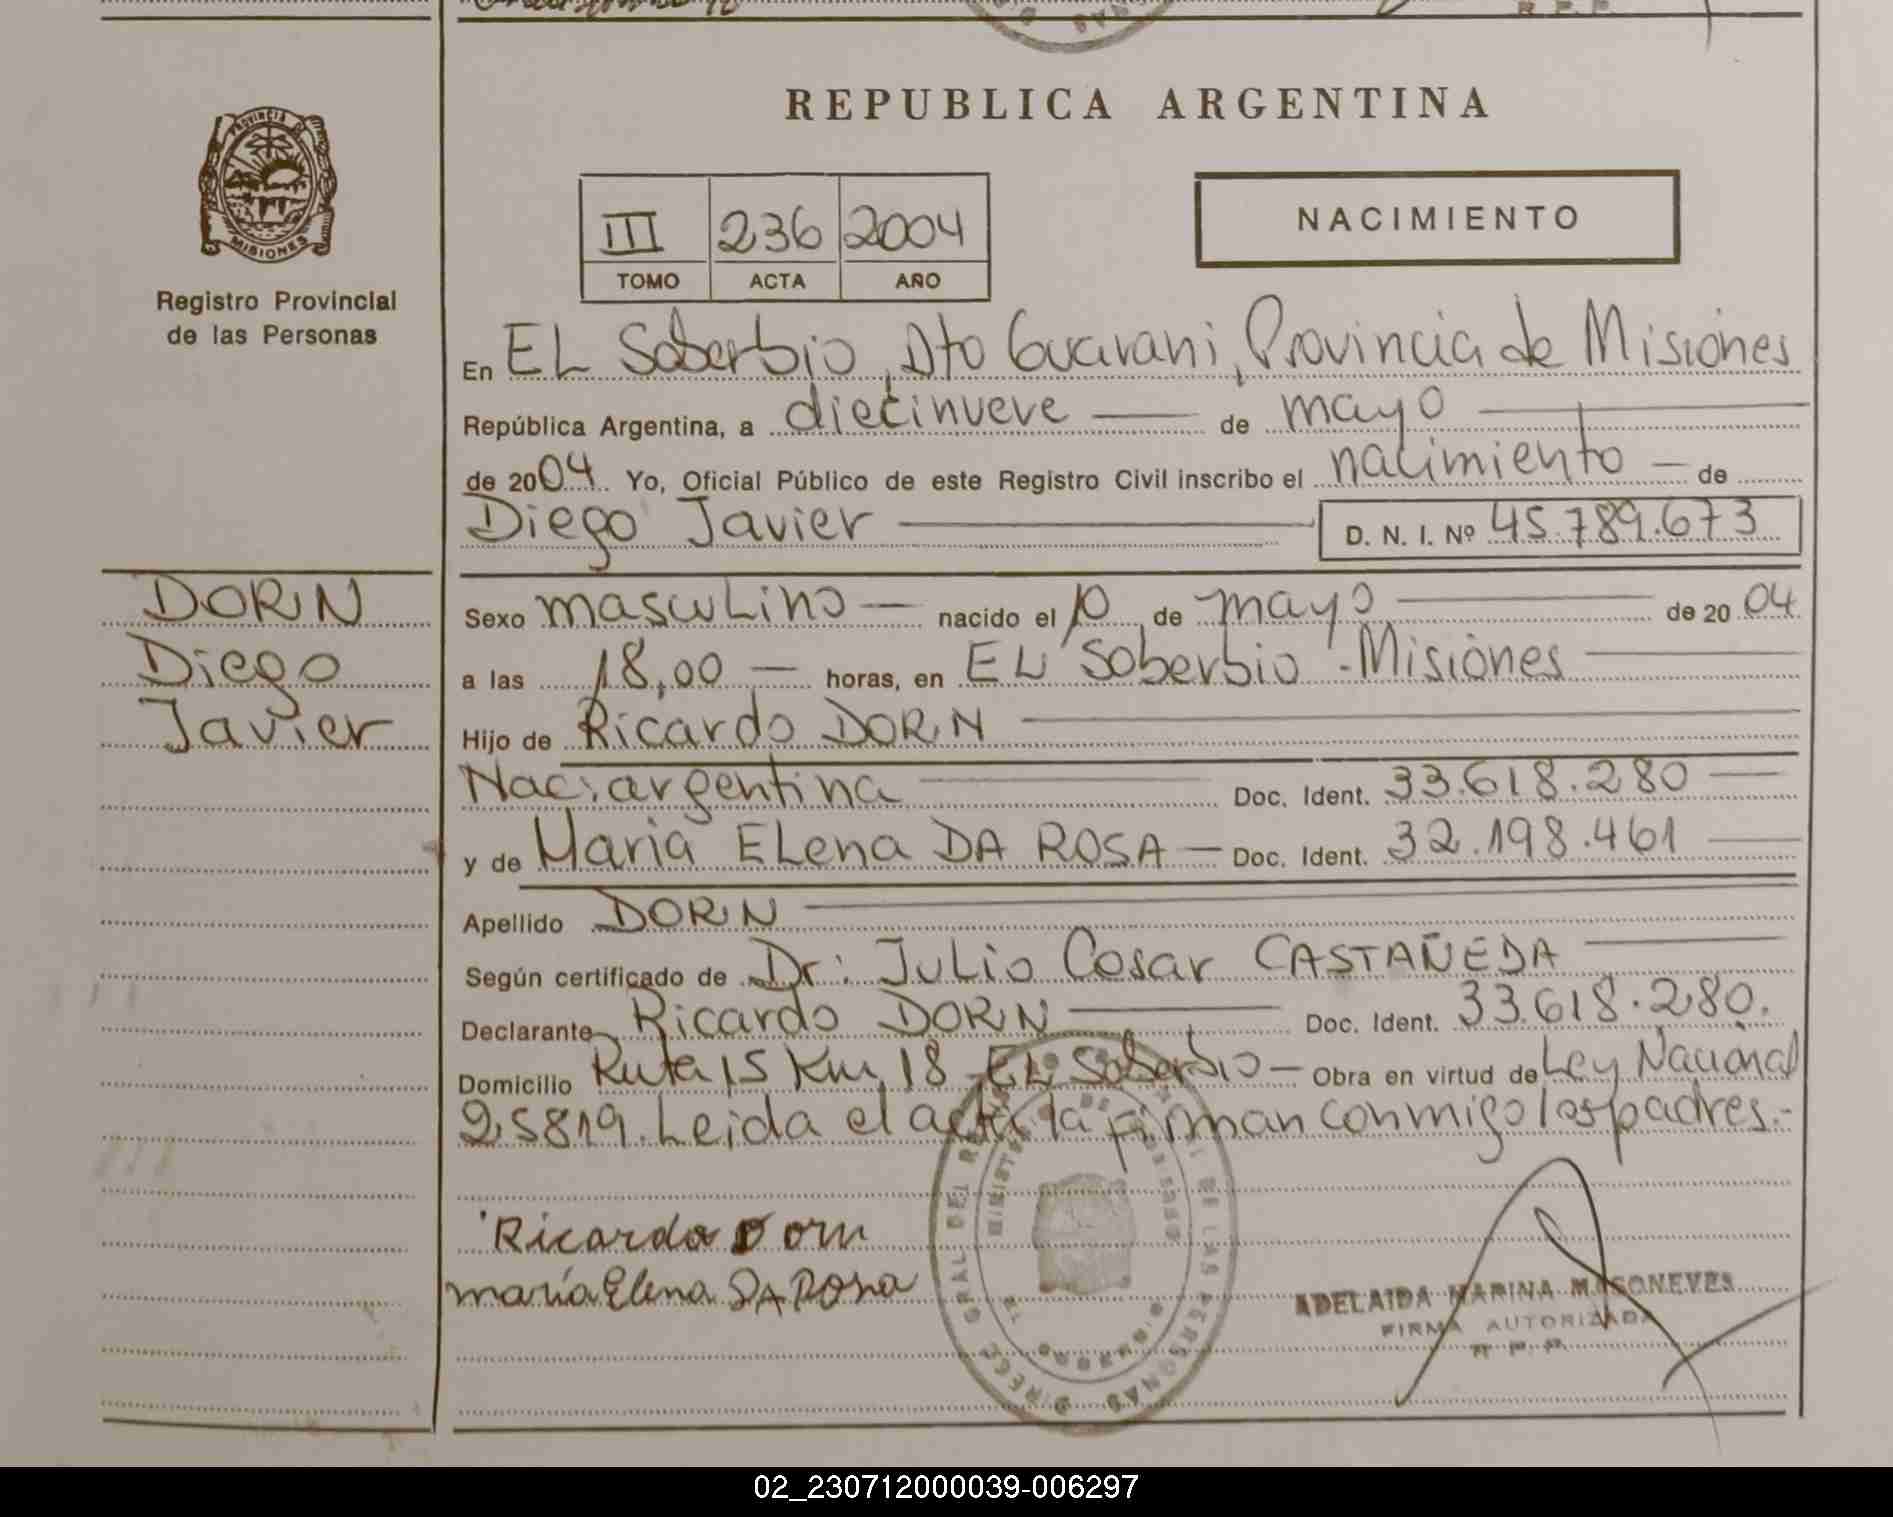 R. P. P.
REPUBLICA ARGENTINA
PROVINCIA DE
MISIONES
Registro Provincial
de las Personas
III 236 2004
TOMO ACTA AÑO
NACIMIENTO
En EL Soberbio, Dto Guarani, Provincia de Misiones
República Argentina, a diecinueve — de mayo —
de 2004 Yo, Oficial Público de este Registro Civil inscribo el nacimiento — de
Diego Javier — D. N. I. Nº 45.789.673
DORN
Diego
Javier
Sexo mascuLino — nacido el 10 de mayo — de 2004
a las 18,00 — horas, en EL Soberbio - Misiones —
Hijo de Ricardo DORN —
Nac: argentina — Doc. Ident. 33.618.280 —
y de Maria ELena DA ROSA — Doc. Ident. 32.198.461 —
Apellido DORN —
Según certificado de Dr: JuLio Cesar CASTAÑEDA —
Declarante Ricardo DORN — Doc. Ident. 33.618.280.
Domicilio Ruta 15 Km, 18 EL Soberbio — Obra en virtud de Ley Nacional
25819. Leida el acta la firman conmigo los padres.-
Ricardo Dorn
maría Elena DA Rosa
DIRECC. GRAL DEL REG. DE LAS PERSONAS
MINISTERIO DE GOBIERNO
EL SOBERBIO
ADELAIDA MARINA MASONEVES
FIRMA AUTORIZADA
R. P. P.
02_230712000039-006297